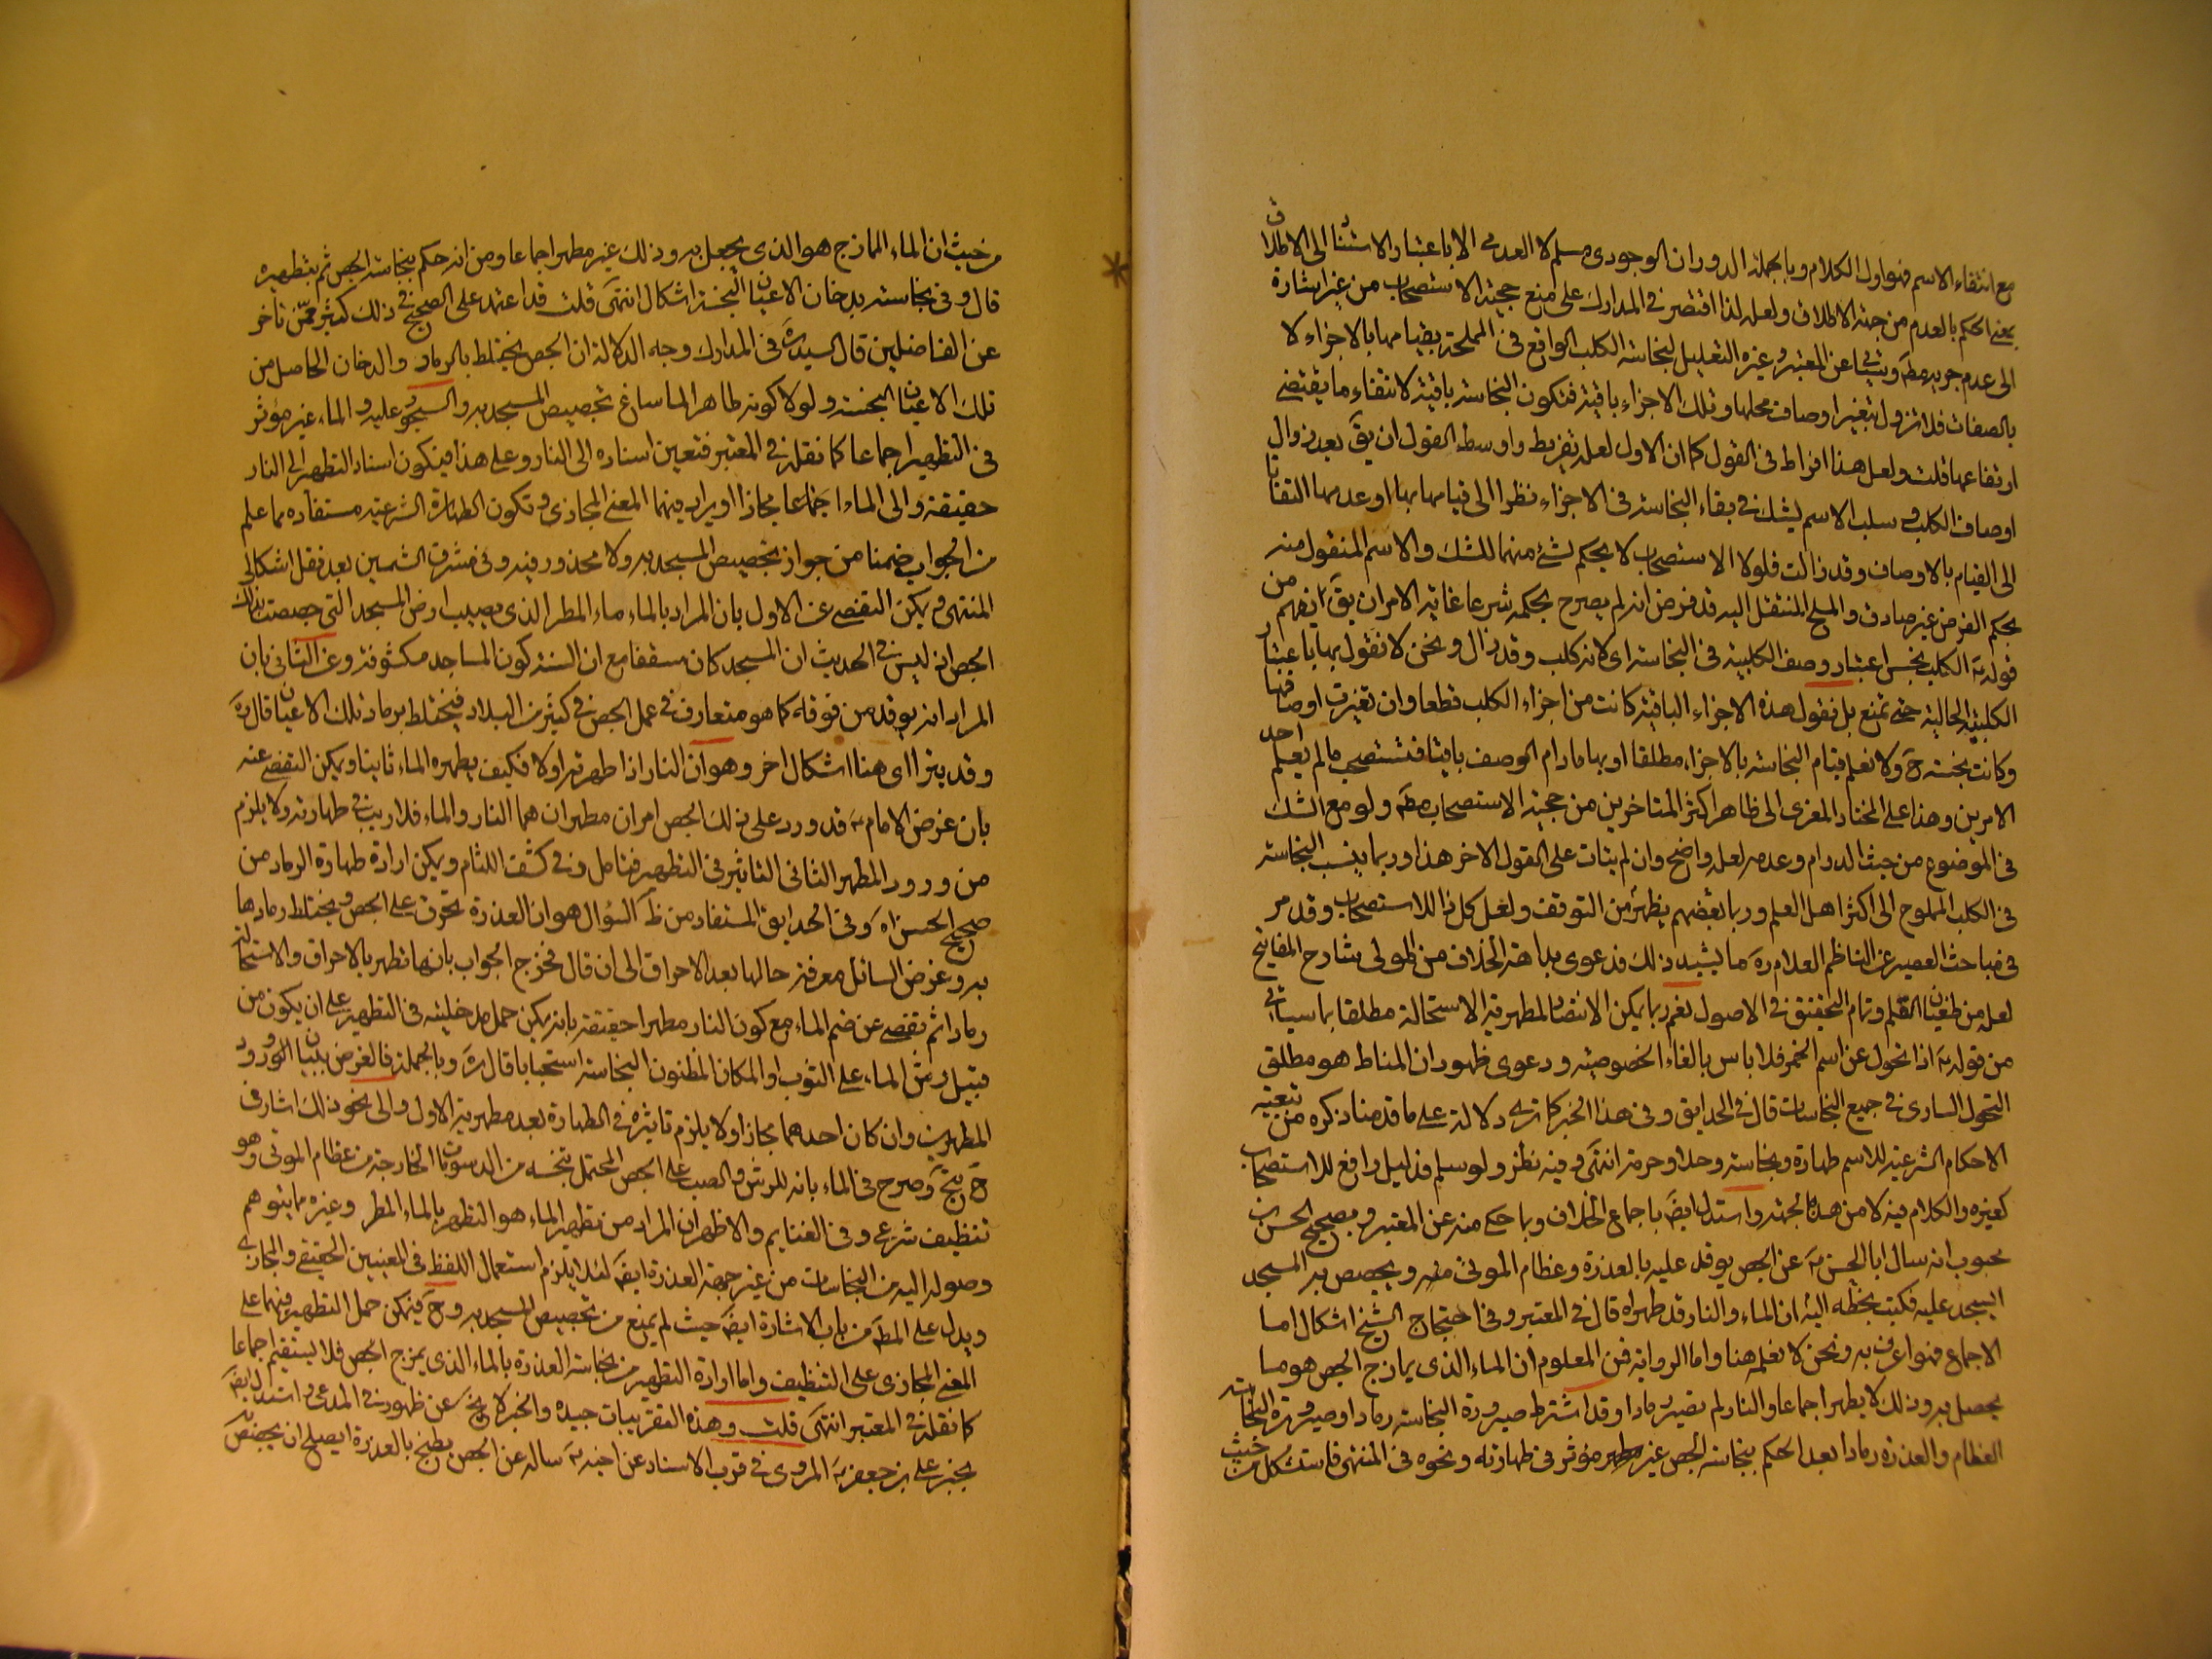 مع انتفاء الاسم فهو اول الكلام وبالجملة الدوران الوجودى مسلم لا العدمى الا باعتبار الاستناد الى الاطلاق
بمعنى الحكم بالعدم من جهة الاطلاق ولعله لذا اقتصر فى المدارك على منع حجية الاستصحاب من غير اشارة
الى عدم جريه مط وينبئ عن المعتبر وغيره التعليل لنجاسة الكلب الواقع فى المملحة بقيامها بالاجزاء لا
بالصفات فلا تزول بتغير اوصاف محلها وتلك الاجزاء باقية فتكون النجاسة باقية لانتفاء ما يقتضى
ارتفاعها قلت ولعل هذا افراط فى القول كما ان الاول لعله تفريط واوسط القول ان يق بعد زوال
اوصاف الكلب وسلب الاسم يشك فى بقاء النجاسة فى الاجزاء نظرا الى قيامها بها او عدمها التفاتا
الى القيام بالاوصاف وقد زالت فلولا الاستصحاب لا يحكم بشئ منهما للشك والاسم المنقول منه
بحكم الفرض غير صادق والملح المنتقل اليه قد فرض انه لم يصرح بحكمه شرعا غاية الامر ان يق انفهم من
قوله الكلب نجس اعتبار وصف الكلبية فى النجاسة اى لانه كلب وقد زال ونحن لا نقول بها باعتبار
الكلبية الحالية حتى تمنع بل نقول هذه الاجزاء الباقية كانت من اجزاء الكلب قطعا وان تغيرت اوصافها
وكانت نجسة ح ولا نعلم قيام النجاسة بالاجزاء مطلقا او بها مادام الوصف باقيا فتستصحب ما لم يعلم احد
الامرين وهذا على المختار المعزى الى ظاهر اكثر المتاخرين من حجية الاستصحاب مط ولو مع الشك
فى الموضوع من حيث الدوام وعدمه لعله واضح وان لم يتات على القول الاخر هذا وربما ينسب النجاسة
فى الكلب المملوح الى اكثر اهل العلم وربما بعضهم يظهر من التوقف ولعل كل ذا للاستصحاب وقد مر
فى مباحث العصير عن الناظم العلام ره ما يشيد ذلك فدعوى بداهة الخلاف من المولى شارح المفاتيح
لعله من طغيان القلم وتمام التحقيق فى الاصول نعم ربما يمكن الانتصار لمطهرية الاستحالة مطلقا بما سياتى
من قوله اذا تحول عن اسم الخمر فلا باس بالغاء الخصوصية ودعوى ظهور ان المناط هو مطلق
التحول السارى فى جميع النجاسات قال فى الحدايق وفى هذا الخبر كما ترى دلالة على ما قدمنا ذكره من تبعية
الاحكام الشرعية للاسم طهارة ونجاسة وحلا وحرمة انتهى وفيه نظر ولو سلم فدليل رافع للاستصحاب
كغيره والكلام فيه لا من هذه الجهة واستدل ايض باجماع الخلاف وبما حكى منه عن المعتبر وبصحيح الحسن بن
محبوب انه سال ابا الحسن عن الجص يوقد عليه بالعذرة وعظام الموتى ويجصص به المسجد
ايسجد عليه فكتب بخطه اليه ان الماء والنار قد طهراه قال فى المعتبر وفى احتجاج الشيخ اشكال اما
الاجماع فهو اعرف به ونحن لا نعلمه هنا واما الرواية فمن المعلوم ان الماء الذى يمازج الجص هو ما
يحصل به وذلك لا يطهر اجماعا والنار لم تصيره رمادا وقد اشترط صيرورة النجاسة رمادا وصيرورة النجاسة
العظام والعذرة رمادا بعد الحكم بنجاسة الجص غير مؤثر فى طهارته ونحوه فى المنتهى فاستشكل من حيث
من حيث ان الماء الممازج هو الذى يجبل به وذلك غير مطهر اجماعا ومن انه حكم بنجاسة الجص ثم بتطهيره
قال وفى نجاسته بدخان الاعيان النجسة اشكال انتهى قلت قد اعتمد على الصحيح فى ذلك كثير ممن تاخر
عن الفاضلين قال السيد ره فى المدارك وجه الدلالة ان الجص يختلط بالرماد والدخان الحاصل من
تلك الاعيان النجسة ولولا كونه طاهرا لما ساغ تجصيص المسجد به والسجود عليه والماء غير مؤثر
فى التطهير اجماعا كما نقله فى المعتبر فتعين اسناده الى النار وعلى هذا فيكون اسناد التطهر الى النار
حقيقة والى الماء اجماعا مجازا او يراد فيهما المعنى المجازى وتكون الطهارة الشرعية مستفاده مما علم
من الجواب ضمنا من جواز تجصيص المسجد به ولا محذور فيه وفى مشرق الشمسين بعد نقل اشكالى
المنتهى ويمكن التفصى عن الاول بان المراد بالماء ماء المطر الذى يصيب ارض المسجد التى جصصت بذلك
الجص انه ليس فى الحديث ان المسجد كان مسقفا مع ان السنة كون المساجد مكشوفة وعن الثانى بان
المراد انه يوقد من فوقه كما هو متعارف فى عمل الجص فى كثير من البلاد فيختلط برماد تلك الاعيان قال ره
وقد يترااى هنا اشكال اخر وهو ان النار اذا طهرته اولا فكيف يطهره الماء ثانيا ويمكن التفصى عنه
بان غرض الامام قد ورد على ذلك الجص امران مطهران هما النار والماء فلا ريب فى طهارته ولا يلزم
من ورود المطهر الثانى التاثير فى التطهير فتامل وفى كشف اللثام ويمكن ارادة طهارة الرماد من
صحيح الحسن اه وفى الحدايق المستفاد من ظ السؤال هو ان العذرة تحرق على الجص ويختلط رمادها
به وغرض السائل معرفة حالها بعد الاحراق الى ان قال فخرج الجواب بانها تطهر بالاحراق والاستحالة
رمادا ثم تفصى عن ضم الماء مع كون النار مطهرا حقيقة بانه يمكن حمل مدخليته فى التطهير على ان يكون من
قبيل رش الماء على الثوب او المكان المظنون النجاسة استحبابا قال ره وبالجملة فالغرض بيان ورود
المطهرين وان كان احدهما مجازا ولا يلزم تاثيره فى الطهارة بعد مطهرية الاول والى نحو ذلك اشار فى
وصرح فى الماء بانه للرش والصب على الجص المحتمل تنجسه من الدسومات الخارجة من عظام الموتى وهو
تنظيف شرعى وفى الغنايم والاظهر ان المراد من تطهير الماء هو التطهر بالماء المطر وغيره مما يتوهم
وصوله اليه من النجاسات من غير جهة العذرة ايض لئلا يلزم استعمال اللفظ فى المعنيين الحقيقى والمجازى
ويدل على المط من باب الاشارة ايض حيث لم يمنع من تجصيص المسجد به وح فيمكن حمل التطهير فيهما على
المعنى المجازى على التنظيف واما ارادة التطهير من نجاسة العذرة بالماء الذى يمزج الجص فلا يستقيم اجماعا
كما نقله فى المعتبر انتهى قلت وهذه التقريبات جيده والخبر لا يخ عن ظهور فى المدعى واستدل ايض
بخبر على بن جعفر المروى فى قرب الاسناد عن اخيه ساله عن الجص يطبخ بالعذرة ايصلح ان يجصص